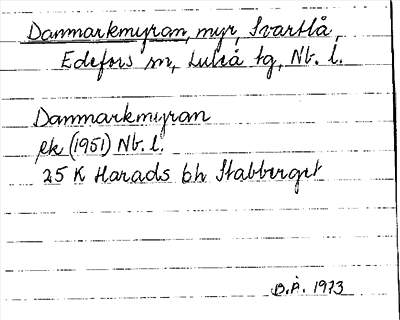 Dammarkmyran, myr, Svartlå,
Edefors sn, Luleå tg, Nb. l.
Dammarkmyran
ek (1951) Nb. l.
25 K Harads bh Stabberget
B.Å. 1973